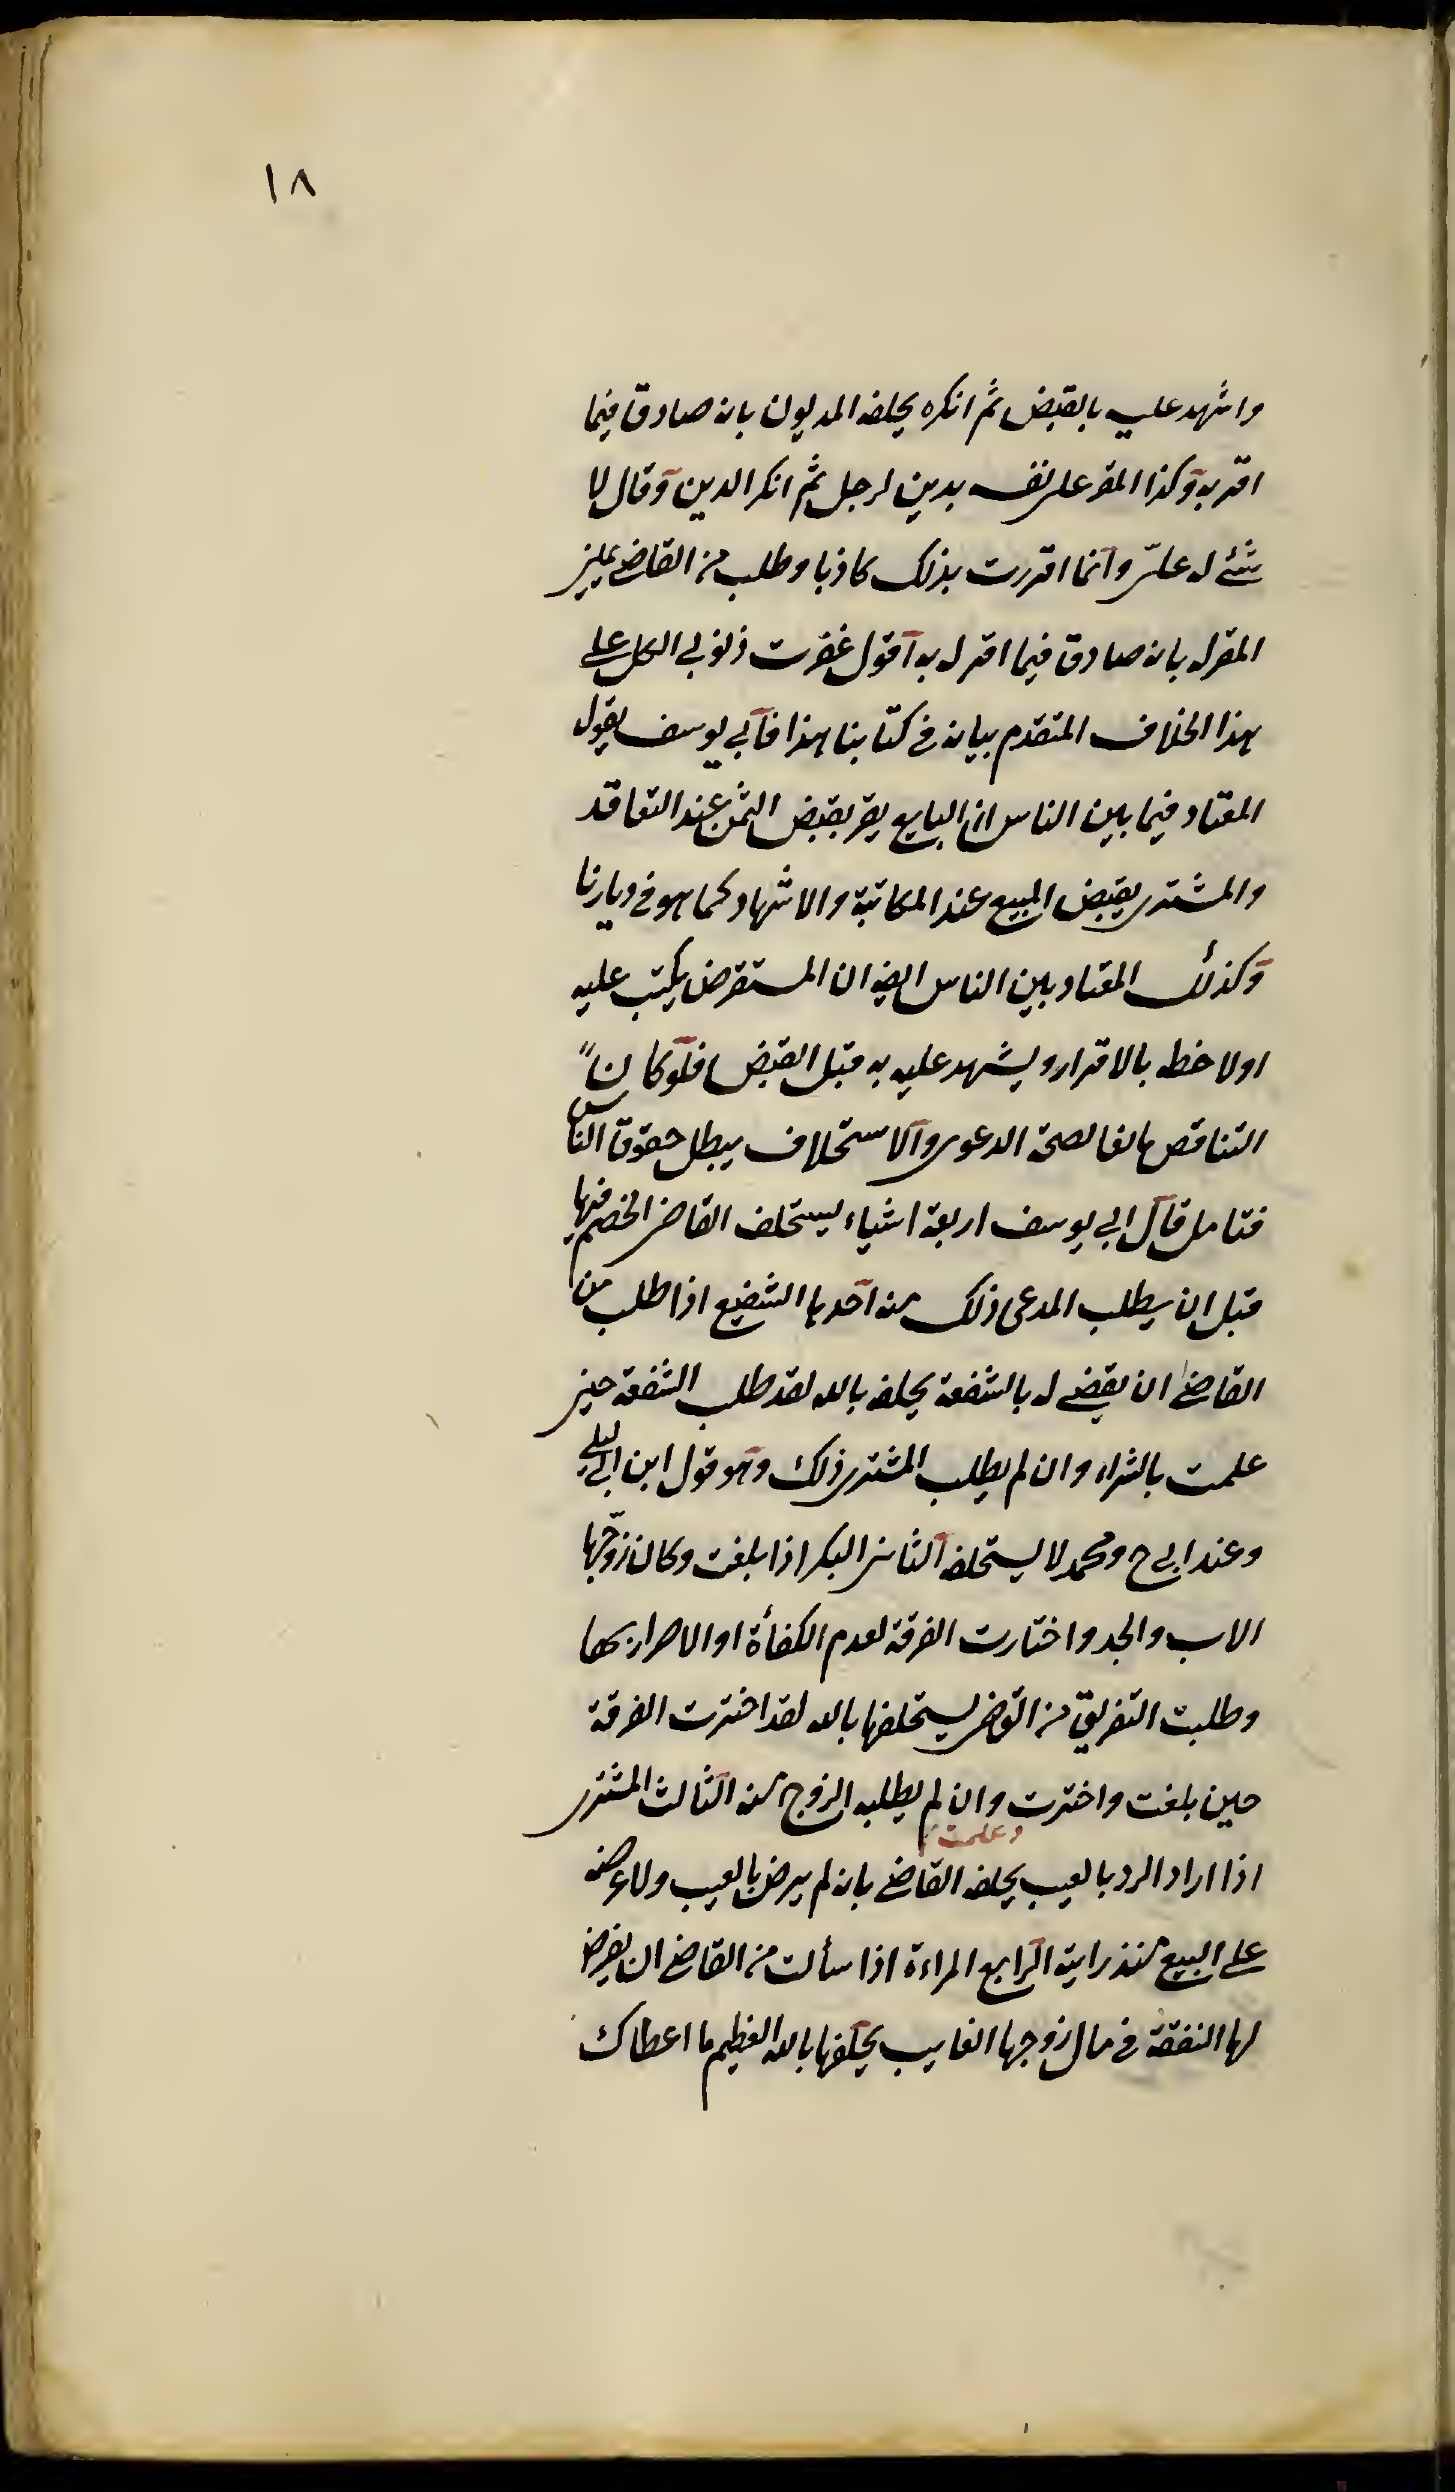 ١٨
واشهد عليه بالقبض ثم انكره يحلف المديون بانه صادق فيما
اقر به وكذا المقر على نفسه بدين لرجل ثم انكر الدين وقال لا
شئ له علىّ وانما اقررت بذلك كاذبا وطلب من القاضى يمين
المقر له بانه صادق فيما اقر له به اقول غفرت ذنوبى الكل على
هذا الخلاف المتقدم بيانه فى كتابنا هذا فابى يوسف يقول
المعتاد فيما بين الناس ان البايع يقر بقبض الثمن عند التعاقد
والمشترى يقبض المبيع عند المكاتبة والاشهاد كما هو فى ديارنا
وكذلك المعتاد بين الناس ايضا ان المستقرض يكتب عليه
اولا خطه بالاقرار ويشهد عليه به قبل القبض فلو كان
التناقض مانعا لصحة الدعوى والاستحلاف يبطل حقوق الناس
فتامل قال ابى يوسف اربعة اشياء يستحلف القاضى الخصم فيها
قبل ان يطلب المدعى ذلك منه احدها الشفيع اذا طلب من
القاضى ان يقضى له بالشفعة يحلف بالله لقد طلب الشفعة حين
علمت بالشراء وان لم يطلب المشترى ذلك وهو قول ابن ابى ليلى
وعند ابى ح ومحمد لا يستحلف الثانى البكر اذا بلغت وكان زوّجها
الاب والجد واختارت الفرقة لعدم الكفأة او الاصرار بها
وطلبت التفريق من القاضى يستحلفها بالله لقد اخترت الفرقة
حين بلغت واخترت وان لم يطلبه الزوج منه الثالث المشترى
وعلمت
اذا اراد الرد بالعيب يحلف القاضى بانه لم يرض بالعيب ولا عرضه
على البيع منذ رايته الرابع المراءة اذا سألت من القاضى ان يفرض
لها النفقة فى مال زوجها الغايب يحلفها بالله العظيم ما اعطاك